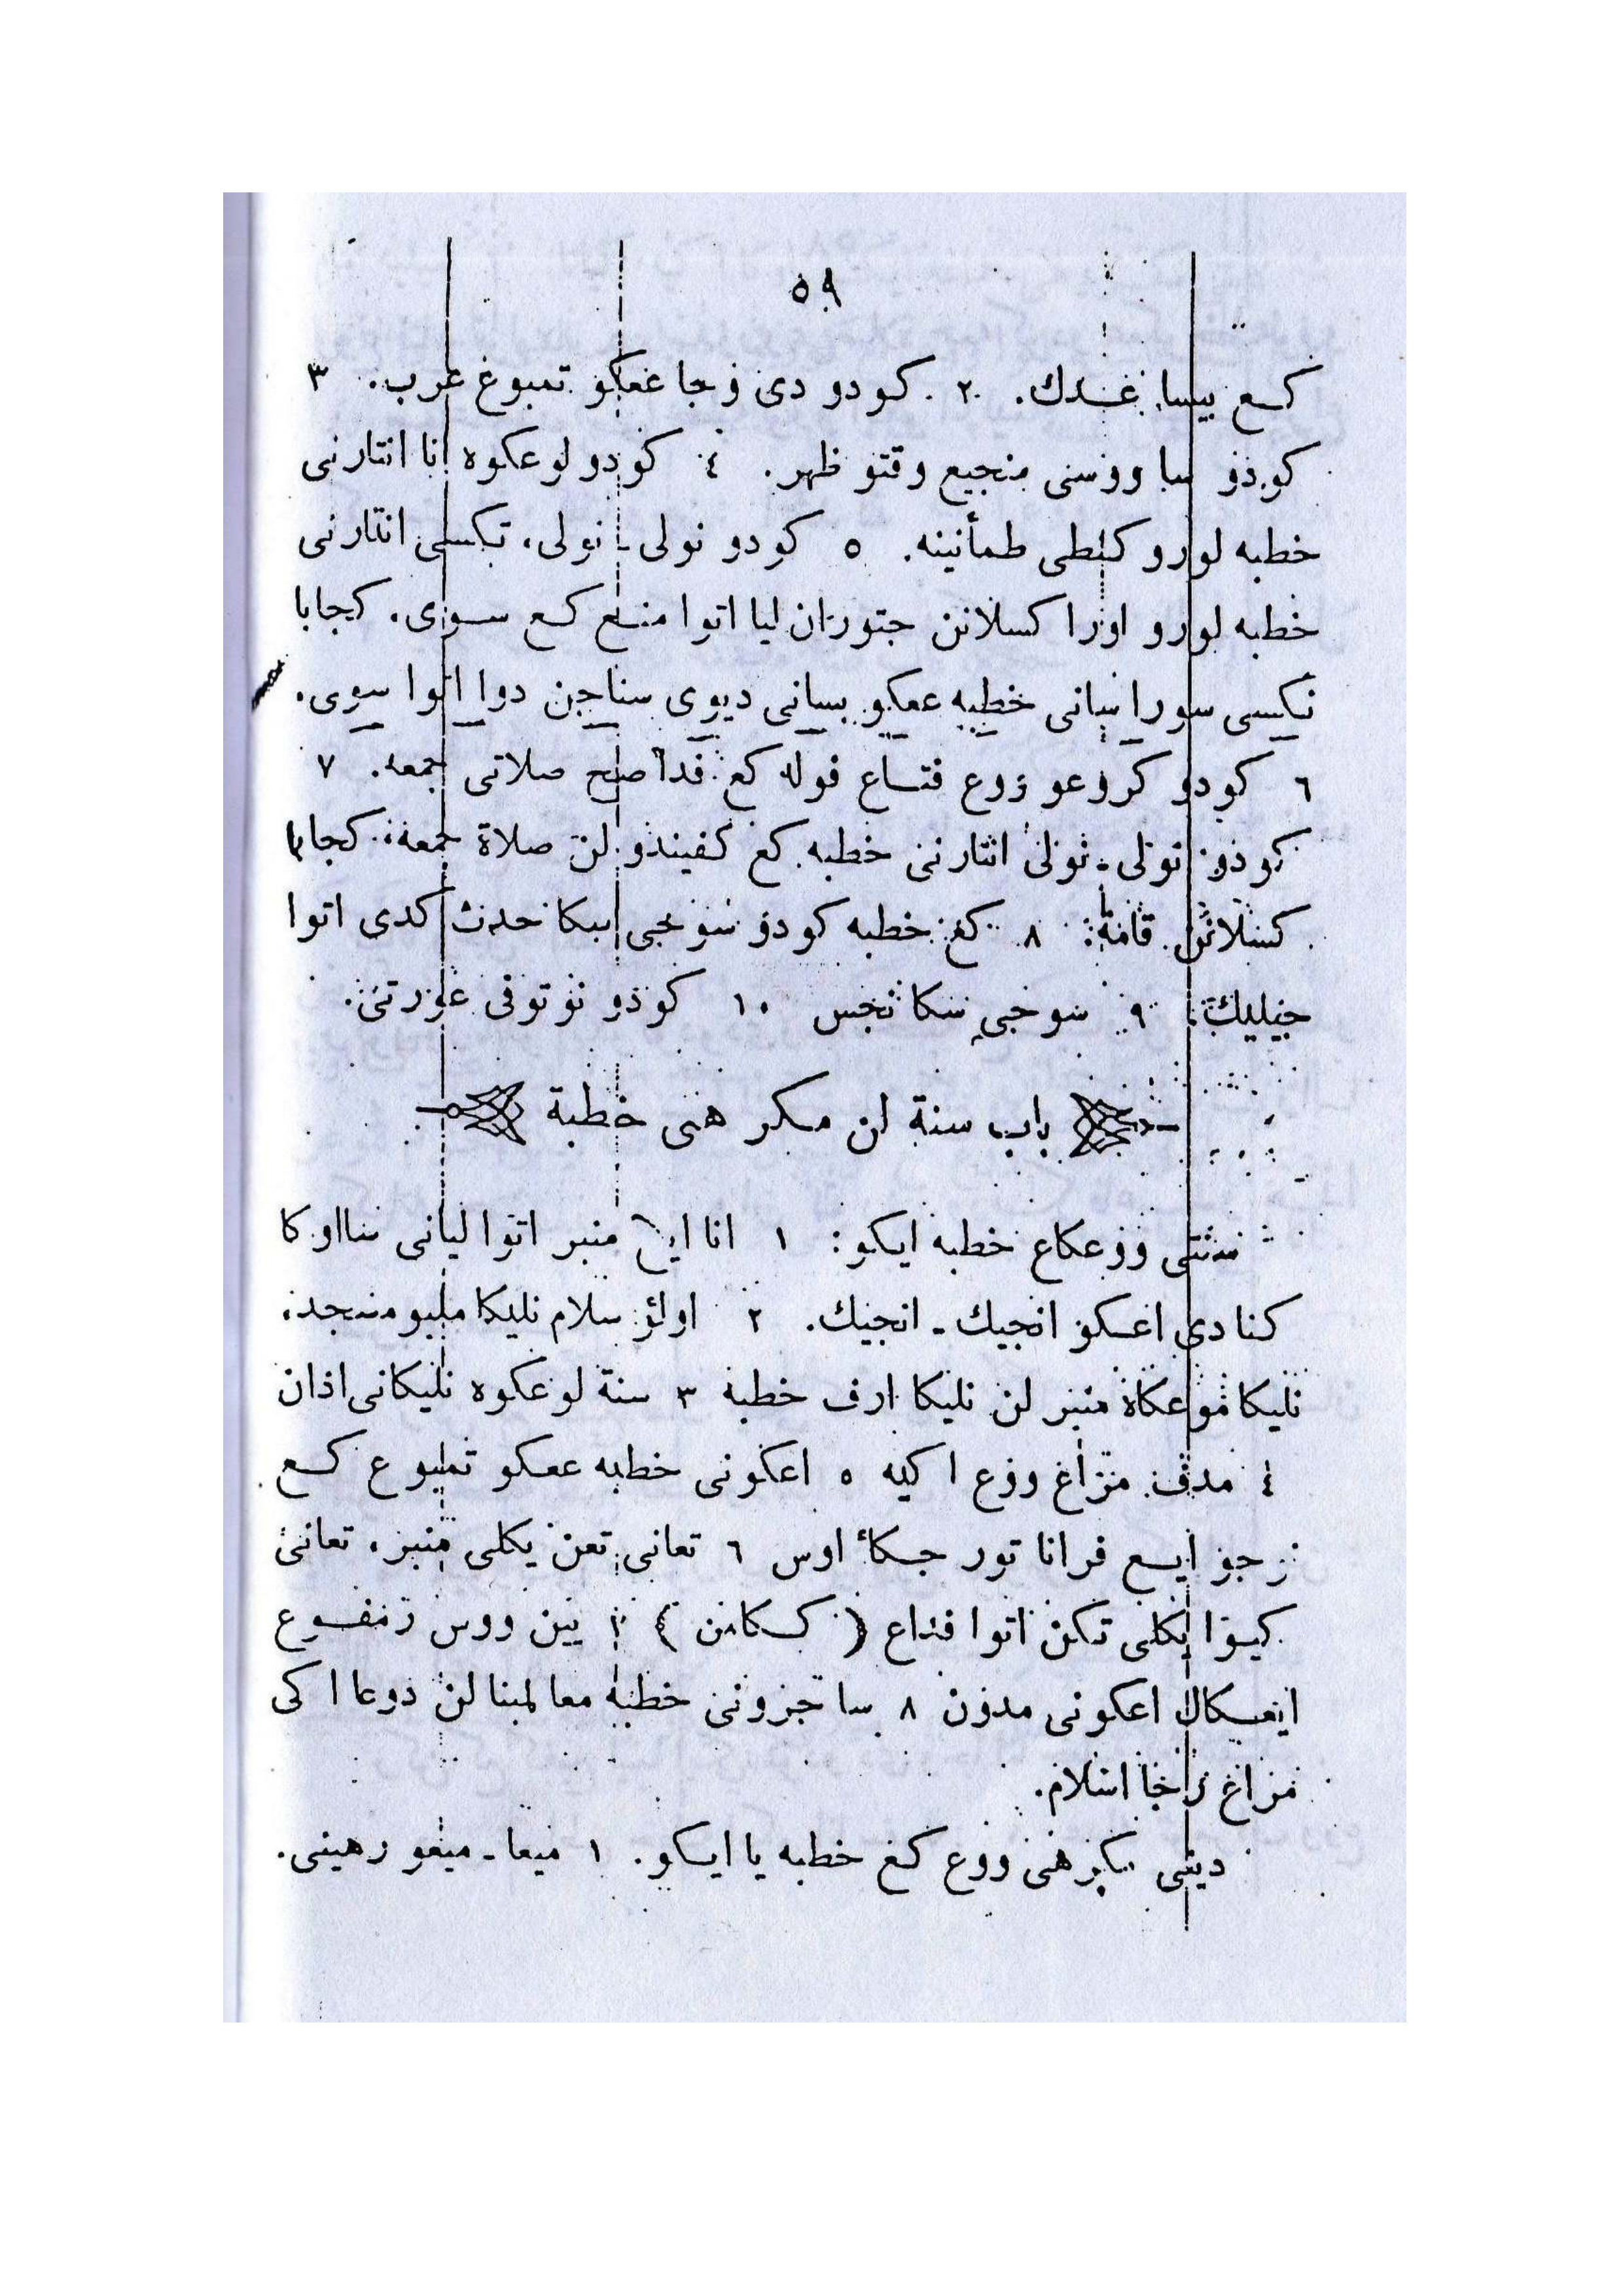 ٥٩
كـع بيسا غـدك. ٢. كودو دى وجا عڠكو تمبوغ عرب. ٣
كودو سا ووسى منجيع وقتو ظهر. ٤ كودو لوعكوه انا انتارنى
خطبه لورو كنطى طمأنينه. ٥ كودو نولى ـ نولى، تكسى انتارنى
خطبه لورو اورا كسلانن جتوران ليا اتوا منـع كـع سـوى. كجابا
تكسى سورا سانى خطبه عڠكو بسانى ديوى سناجن دوا اتوا سوى.
٦ كودو كروعو ووع فتـاع فوله كع فدا صح صلاتى جمعه. ٧
كودو نولى ـ نولى انتارنى خطبه كع كفيندو لن صلاة جمعه، كجابا
كسلانن قامة. ٨ كع خطبه كودو سوجى سكا حدث كدى اتوا
جيليك. ٩ سوجى سكا نجس ١٠ كودو نوتوفى عورتى.
باب سنة لن مكرهنى خطبة
سنتى ووعكاع خطبه ايكو: ١ انا ايع منبر اتوا ليانى سااوكا
كنا دى اعـكو انجيك ـ انجيك. ٢ اولؤ سلام نليكا ملبو مسجد،
نليكا موعكاه منبر لن نليكا ارف خطبة ٣ سنة لوعكوه نليكانى اذان
٤ مدف مراغ ووع اكيه ٥ اعكونى خطبه عڠكو تمبوع كـع
ايـع فرانا تور جـكاء اوس ٦ تعانى تعن يكلى منبر، تعانى
كيوا يكلى تكن اتوا فداع (كـكامن) يين ووس
ايعـكال اعكونى مدون ٨ سا جرونى خطبه معا لمبنا لن دوعا اكى
مراغ راجا اسلام.
دينى مكرهنى ووع كع خطبه يا ايكو. ١ ميعا ـ ميعو رهينى.